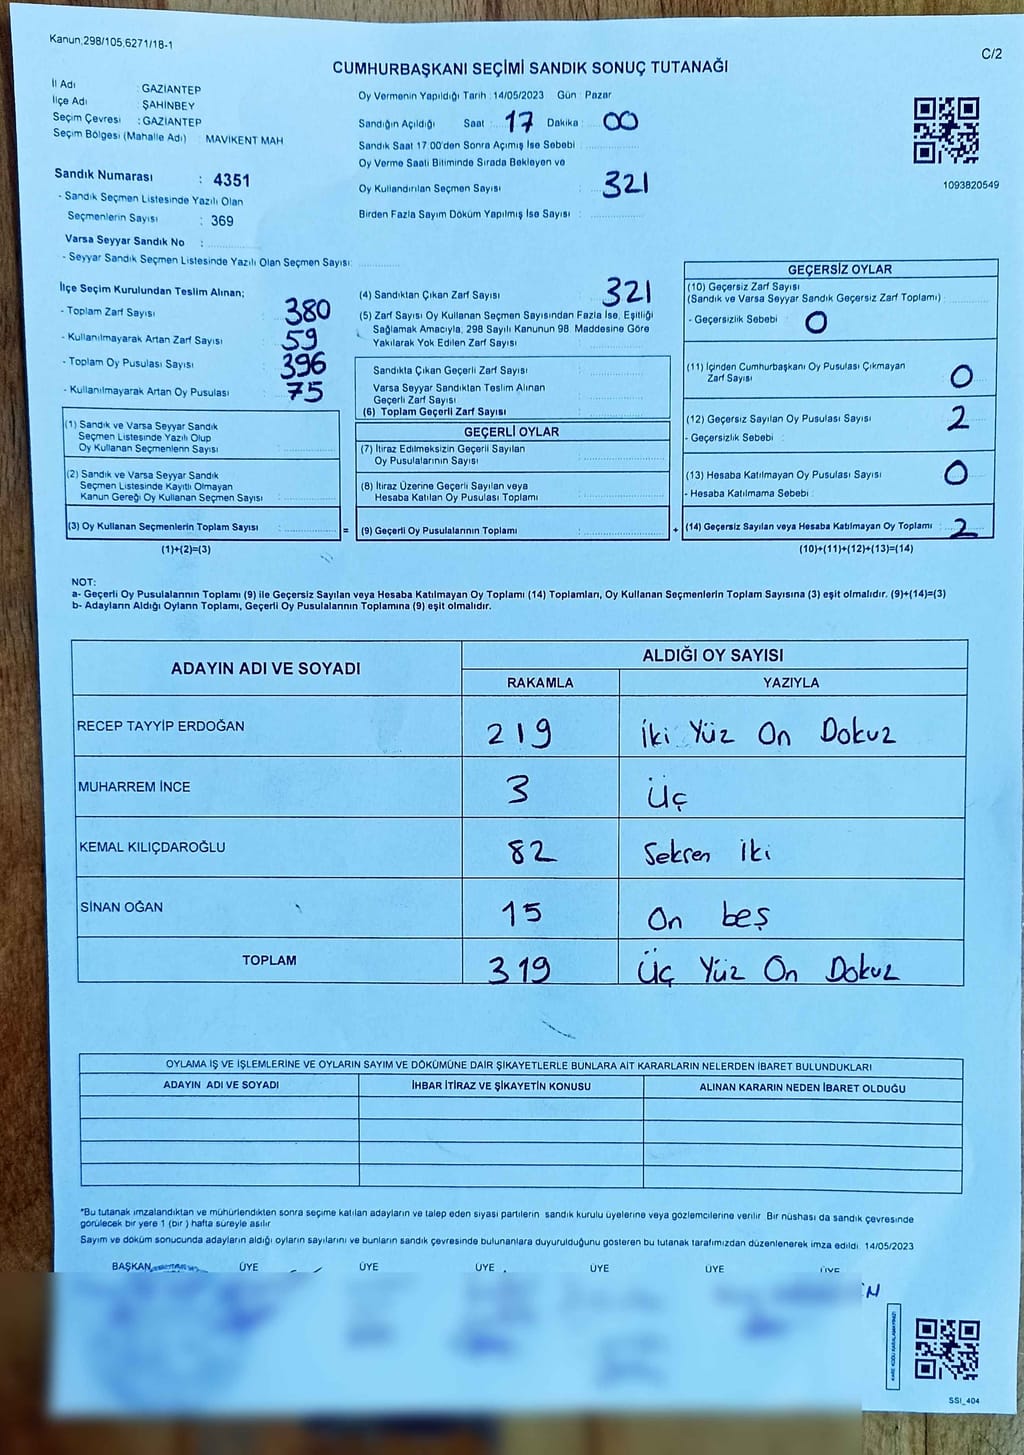 Kanun,298/105,6271/18-1
C/2
CUMHURBAŞKANI SEÇİMİ SANDIK SONUÇ TUTANAĞI
İl Adı : GAZİANTEP
İlçe Adı : ŞAHİNBEY
Seçim Çevresi : GAZİANTEP
Seçim Bölgesi (Mahalle Adı) : MAVİKENT MAH
Sandık Numarası : 4351
- Sandık Seçmen Listesinde Yazılı Olan
Seçmenlerin Sayısı : 369
Varsa Seyyar Sandık No :
- Seyyar Sandık Seçmen Listesinde Yazılı Olan Seçmen Sayısı:
Oy Vermenin Yapıldığı Tarih : 14/05/2023 Gün : Pazar
Sandığın Açıldığı Saat : 17 Dakika : 00
Sandık Saat 17.00'den Sonra Açımış İse Sebebi :
Oy Verme Saati Bitiminde Sırada Bekleyen ve
Oy Kullandırılan Seçmen Sayısı : 321
Birden Fazla Sayım Döküm Yapılmış İse Sayısı :
1093820549
İlçe Seçim Kurulundan Teslim Alınan;
- Toplam Zarf Sayısı : 380
- Kullanılmayarak Artan Zarf Sayısı : 59
- Toplam Oy Pusulası Sayısı : 396
- Kullanılmayarak Artan Oy Pusulası : 75
(1) Sandık ve Varsa Seyyar Sandık
Seçmen Listesinde Yazılı Olup
Oy Kullanan Seçmenlerin Sayısı :
(2) Sandık ve Varsa Seyyar Sandık
Seçmen Listesinde Kayıtlı Olmayan
Kanun Gereği Oy Kullanan Seçmen Sayısı :
(3) Oy Kullanan Seçmenlerin Toplam Sayısı :
(1)+(2)=(3)
=
(4) Sandıktan Çıkan Zarf Sayısı : 321
(5) Zarf Sayısı Oy Kullanan Seçmen Sayısından Fazla İse, Eşitliği
Sağlamak Amacıyla, 298 Sayılı Kanunun 98. Maddesine Göre
Yakılarak Yok Edilen Zarf Sayısı :
Sandıkta Çıkan Geçerli Zarf Sayısı :
Varsa Seyyar Sandıktan Teslim Alınan
Geçerli Zarf Sayısı :
(6) Toplam Geçerli Zarf Sayısı :
GEÇERLİ OYLAR
(7) İtiraz Edilmeksizin Geçerli Sayılan
Oy Pusulalarının Sayısı :
(8) İtiraz Üzerine Geçerli Sayılan veya
Hesaba Katılan Oy Pusulası Toplamı :
(9) Geçerli Oy Pusulalarının Toplamı :
+
GEÇERSİZ OYLAR
(10) Geçersiz Zarf Sayısı
(Sandık ve Varsa Seyyar Sandık Geçersiz Zarf Toplamı) :
- Geçersizlik Sebebi : 0
(11) İçinden Cumhurbaşkanı Oy Pusulası Çıkmayan
Zarf Sayısı : 0
(12) Geçersiz Sayılan Oy Pusulası Sayısı : 2
- Geçersizlik Sebebi :
(13) Hesaba Katılmayan Oy Pusulası Sayısı : 0
- Hesaba Katılmama Sebebi :
(14) Geçersiz Sayılan veya Hesaba Katılmayan Oy Toplamı : 2
(10)+(11)+(12)+(13)=(14)
NOT:
a- Geçerli Oy Pusulalarının Toplamı (9) ile Geçersiz Sayılan veya Hesaba Katılmayan Oy Toplamı (14) Toplamları, Oy Kullanan Seçmenlerin Toplam Sayısına (3) eşit olmalıdır. (9)+(14)=(3)
b- Adayların Aldığı Oyların Toplamı, Geçerli Oy Pusulalarının Toplamına (9) eşit olmalıdır.
ADAYIN ADI VE SOYADI
ALDIĞI OY SAYISI
RAKAMLA YAZIYLA
RECEP TAYYİP ERDOĞAN 219 İki Yüz On Dokuz
MUHARREM İNCE 3 Üç
KEMAL KILIÇDAROĞLU 82 Seksen İki
SİNAN OĞAN 15 On beş
TOPLAM 319 Üç Yüz On Dokuz
OYLAMA İŞ VE İŞLEMLERİNE VE OYLARIN SAYIM VE DÖKÜMÜNE DAİR ŞİKAYETLERLE BUNLARA AİT KARARLARIN NELERDEN İBARET BULUNDUKLARI
ADAYIN ADI VE SOYADI İHBAR İTİRAZ VE ŞİKAYETİN KONUSU ALINAN KARARIN NEDEN İBARET OLDUĞU
*Bu tutanak imzalandıktan ve mühürlendikten sonra seçime katılan adayların ve talep eden siyasi partilerin sandık kurulu üyelerine veya gözlemcilerine verilir. Bir nüshası da sandık çevresinde
görülecek bir yere 1 (bir) hafta süreyle asılır
Sayım ve döküm sonucunda adayların aldığı oyların sayılarını ve bunların sandık çevresinde bulunanlara duyurulduğunu gösteren bu tutanak tarafımızdan düzenlenerek imza edildi. 14/05/2023
BAŞKAN ÜYE ÜYE ÜYE ÜYE ÜYE ÜYE
SSI_404